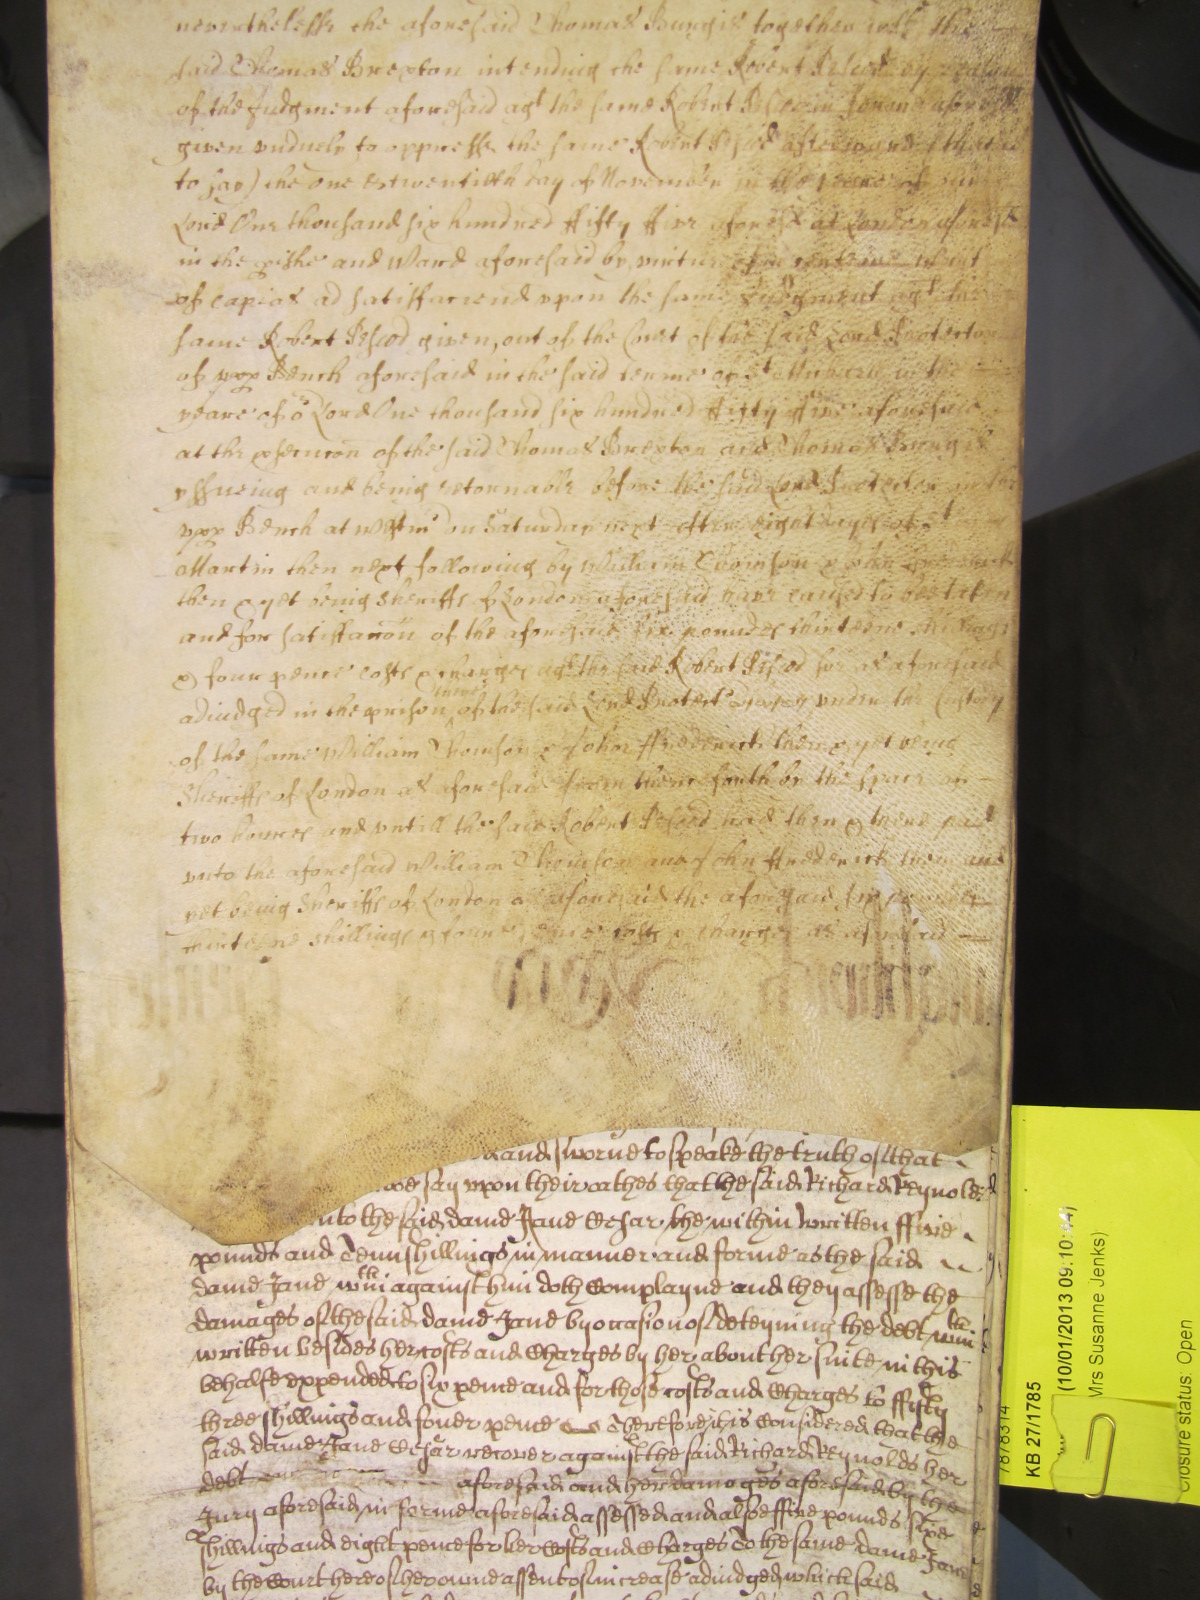 nevertheless the aforesaid Thomas Burgis together wth the
said Thomas Brexton intending the same Robert by
of the Judgment aforesaid agt the same Robert in forme afores
given unduely to oppresse the same Robert afterwards (that is
to say) the one & twentieth day of November in the yeare of our
Lord One thousand six hundred fifty five aforesd at London aforesd
in the pishe and Ward aforesaid by virtue of a certaine Writt
of capias ad satisfaciend upon the same Judgment agt the
same Robert given, out of the Court of the said Lord Protector
of upp Bench aforesaid in the said terme of St Michael in the
yeare of or Lord One thousand six hundred fifty five aforesaid
at the psecucon of the said Thomas Brexton and Thomas Burgis
yssueing and being retornable before the said Lord Protector in the
upp Bench at Westmr on Saturday next after eight dayes of St
Martin then next following by William Thomson & John Frederick
then & yet being Sheriffs of London aforesaid have caused to bee taken
and for satisfaccon of the aforesaid six poundes thirteene shillings
& four pence costs & charges agt the said Robert soe as aforesaid
adiudged in the prison of the said Lord Protectr under the Custody
of the same William Thomson & John Frederick then & yet being
Sheriffs of London as aforesaid from thence forth by the space of
two houres and untill the said Robert had then & there paid
unto the aforesaid William Thomson and John Frederick then and
yet being Sheriffs of London as aforesaid the aforesaid six poundes
thirteene shillings & foure pence costs & charges as aforesaid
and sworne to speake the truth of that
say upon their oathes that the said Richard Reynolds
unto the said dame Jane Cesar the within written ffive
pounds and Tenn shillings in manner and forme as the said
dame Jane wthin against him doth complayne and they assesse the
damages of the said dame Jane by occasion of deteyning the debt wthin
written besides her costs and charges by her about her suite in this
behalfe expended to six pence and for those costs and charges to ffifty
three shillings and fower pence Therefore it is considered that the
said dame Jane Cesar recover against the said Richard Reynolds her
debt aforesaid and her damages aforesaid by the
Jury aforesaid in forme aforesaid assessed and alsoe ffive pounds sixe
shillings and eight pence for her costs and charges To the same dame Jane
by the Court here of her owne assent of increase adiudged which said
7878314
KB 27/1785
(10/01/2013 09:10:44)
Mrs Susanne Jenks)
Closure status: Open